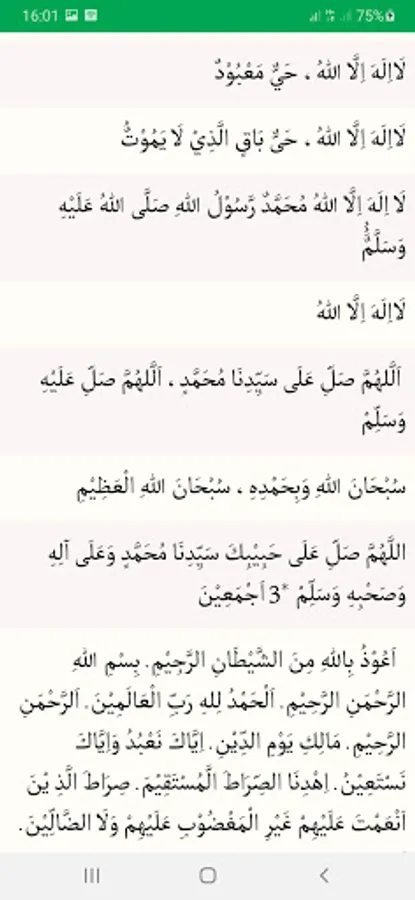 16:01 75%
لَااِلَهَ اِلَّا اللهُ ، حَيٌّ مَعْبُوْدٌ
لَااِلَهَ اِلَّا اللهُ ، حَىٌّ بَاقٍ الَّذِيْ لَا يَمُوْتُ
لَا اِلَهَ اِلَّا اللهُ مُحَمَّدٌ رَّسُوْلُ اللهِ صَلَّى اللهُ عَلَيْهِ
وَسَلَّمٌ
لَااِلَهَ اِلَّا اللهُ
اَللَّهُمَّ صَلِّ عَلَى سَيِّدِنَا مُحَمَّدٍ ، اَللَّهُمَّ صَلِّ عَلَيْهِ
وَسَلِّمْ
سُبْحَانَ اللهِ وَبِحَمْدِهِ ، سُبْحَانَ اللهِ الْعَظِيْمِ
اللَّهُمَّ صَلِّ عَلَى حَبِيْبِكَ سَيِّدِنَا مُحَمَّدٍ وَعَلَى آلِهِ
وَصَحْبِهِ وَسَلِّمْ *3 اَجْمَعِيْنَ
اَعُوْذُ بِاللهِ مِنَ الشَّيْطَانِ الرَّجِيْمِ. بِسْمِ اللهِ
الرَّحْمَنِ الرَّحِيْمِ. اَلْحَمْدُ لِلهِ رَبِّ الْعَالَمِيْنَ. اَلرَّحْمَنِ
الرَّحِيْمِ. مَالِكِ يَوْمِ الدِّيْنِ. اِيَّاكَ نَعْبُدُ وَاِيَّاكَ
نَسْتَعِيْنُ. اِهْدِنَا الصِّرَاطَ الْمُسْتَقِيْمَ. صِرَاطَ الَّذِ يْنَ
اَنْعَمْتَ عَلَيْهِمْ غَيْرِ الْمَغْضُوْبِ عَلَيْهِمْ وَلَا الضَّالِّيْنَ.